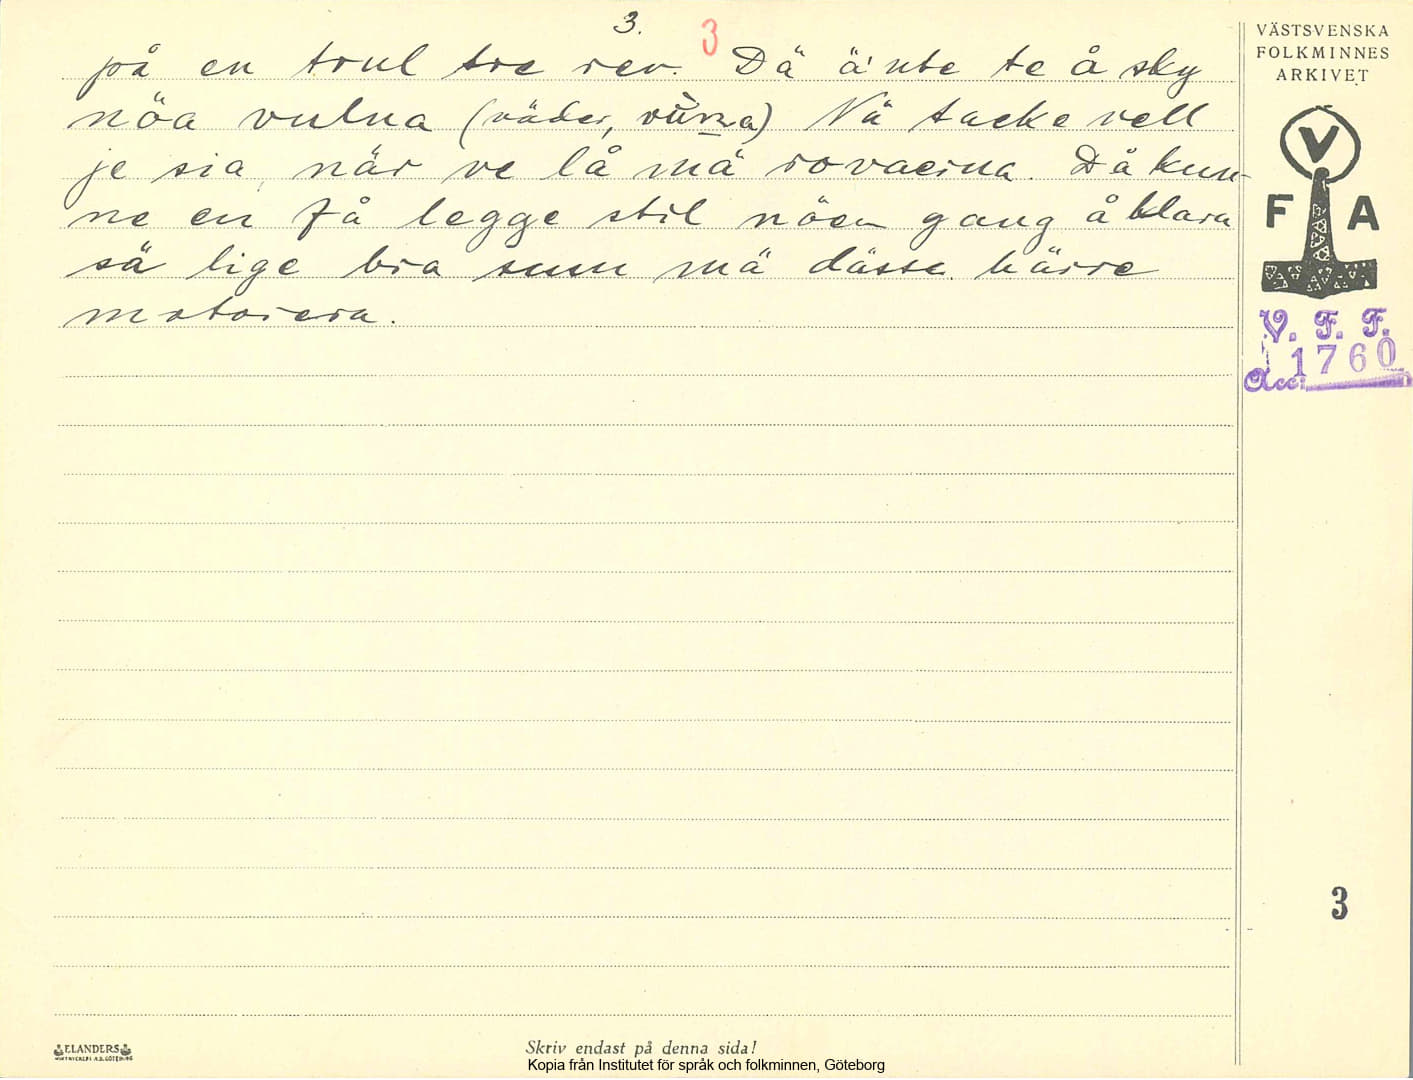 3.
3
på en trul tre rev. Dä ä'nte te å sky
nöa vulna (väder, vúlna) Nä tacke vell
je sia, när ve lå mä rovaerna. Då kun-
ne en få legge stil nöen gang å klara
så lige bra sum mä dässe härre
motorera.
VÄSTSVENSKA
FOLKMINNES
ARKIVET
V
F A
V. F. F.
Acc: 1760
3
ELANDERS
Skriv endast på denna sida!
Kopia från Institutet för språk och folkminnen, Göteborg